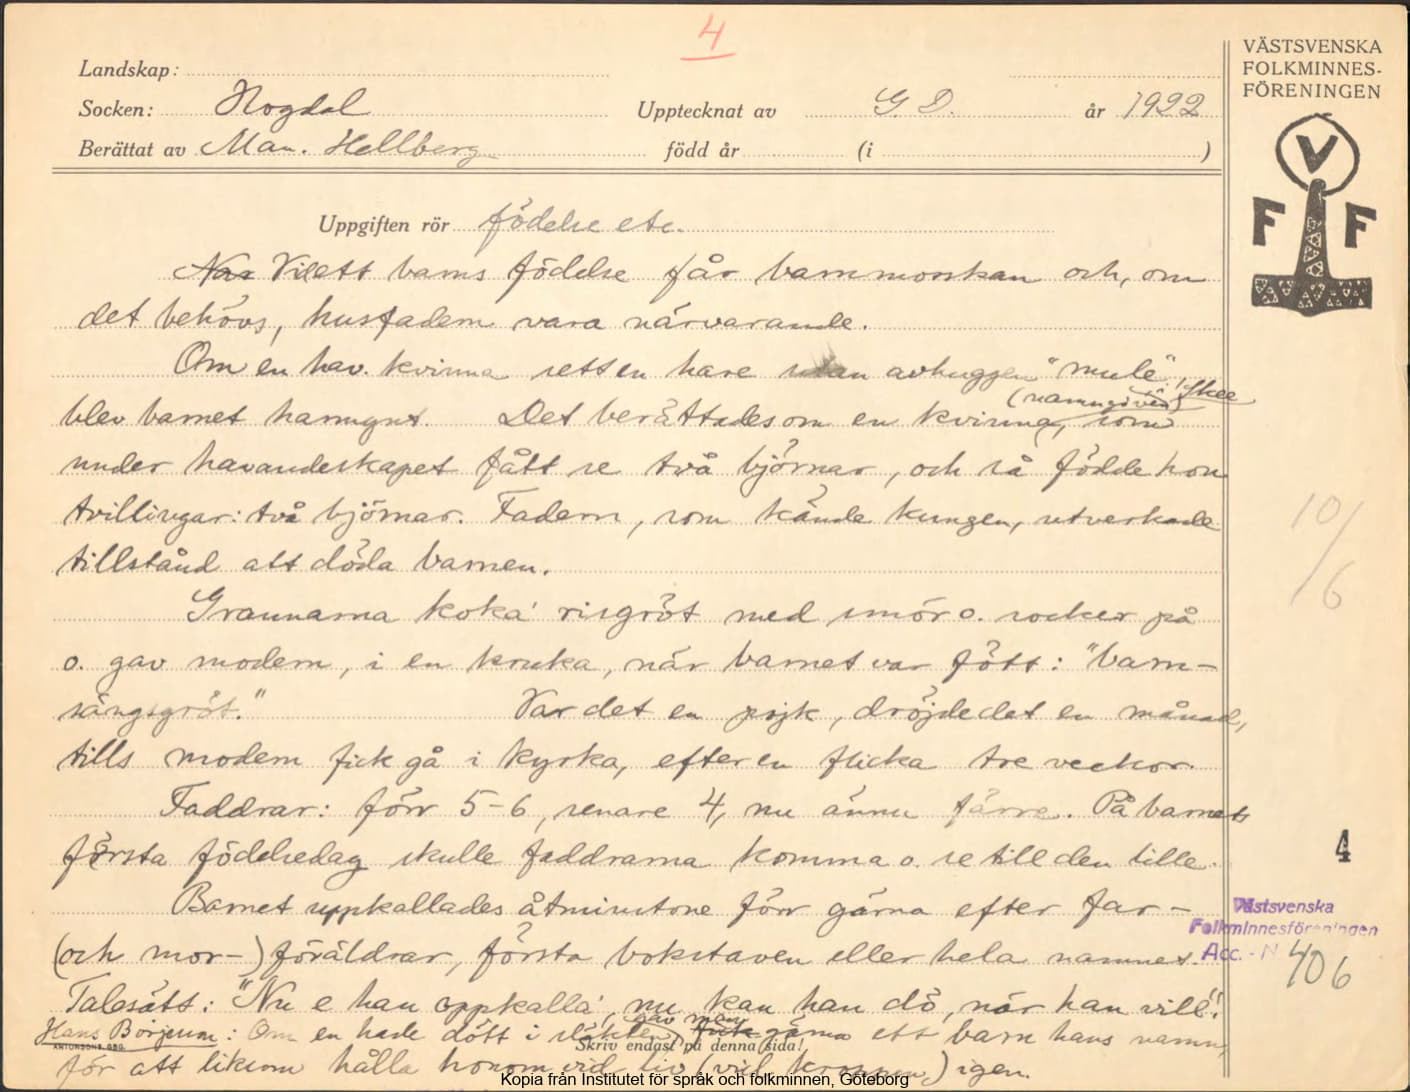 4
Landskap:
VÄSTSVENSKA
FOLKMINNES-
FÖRENINGEN
Socken: Hogdal Upptecknat av G. D. år 1922
Berättat av Man. Hellberg född år (i )
V
F F
Uppgiften rör födelse etc.
När Vid ett barns födelse får barnmorskan och, om
det behövs, husfadern vara närvarande.
Om en hav. kvinna sett en hare utan avhuggen "mule"
blev barnet harmynt. Det berättades om en kvinna, (namngiven) som
under havandeskapet fått se två björnar, och så födde hon
tvillingar: två björnar. Fadern, som kände kungen, utverkade
tillstånd att döda barnen.
10/6
Grannarna koka' risgröt med smör o. socker på
o. gav modern, i en kruka, när barnet var fött: "barn-
sängsgröt." Var det en pojk, dröjde det en månad,
tills modern fick gå i kyrka, efter en flicka tre veckor.
Faddrar: förr 5-6, senare 4, nu ännu färre. På barnets
första födelsedag skulle faddrarna komma o. se till den lille.
4
Barnet uppkallades åtminstone förr gärna efter far-
(och mor-)föräldrar, första bokstaven eller hela namnet.
Västsvenska
Folkminnesföreningen
Acc. - N 406
Talesätt: "Nu e han oppkalla', nu kan han dö, när han vill".
Hans Börjesson: Om en hade dött i släkten, gav man fick gärna ett barn hans namn,
ANTONSONS, GBG.
Skriv endast på denna sida!
för att liksom hålla honom vid liv (vid kroppen) igen.
Kopia från Institutet för språk och folkminnen, Göteborg